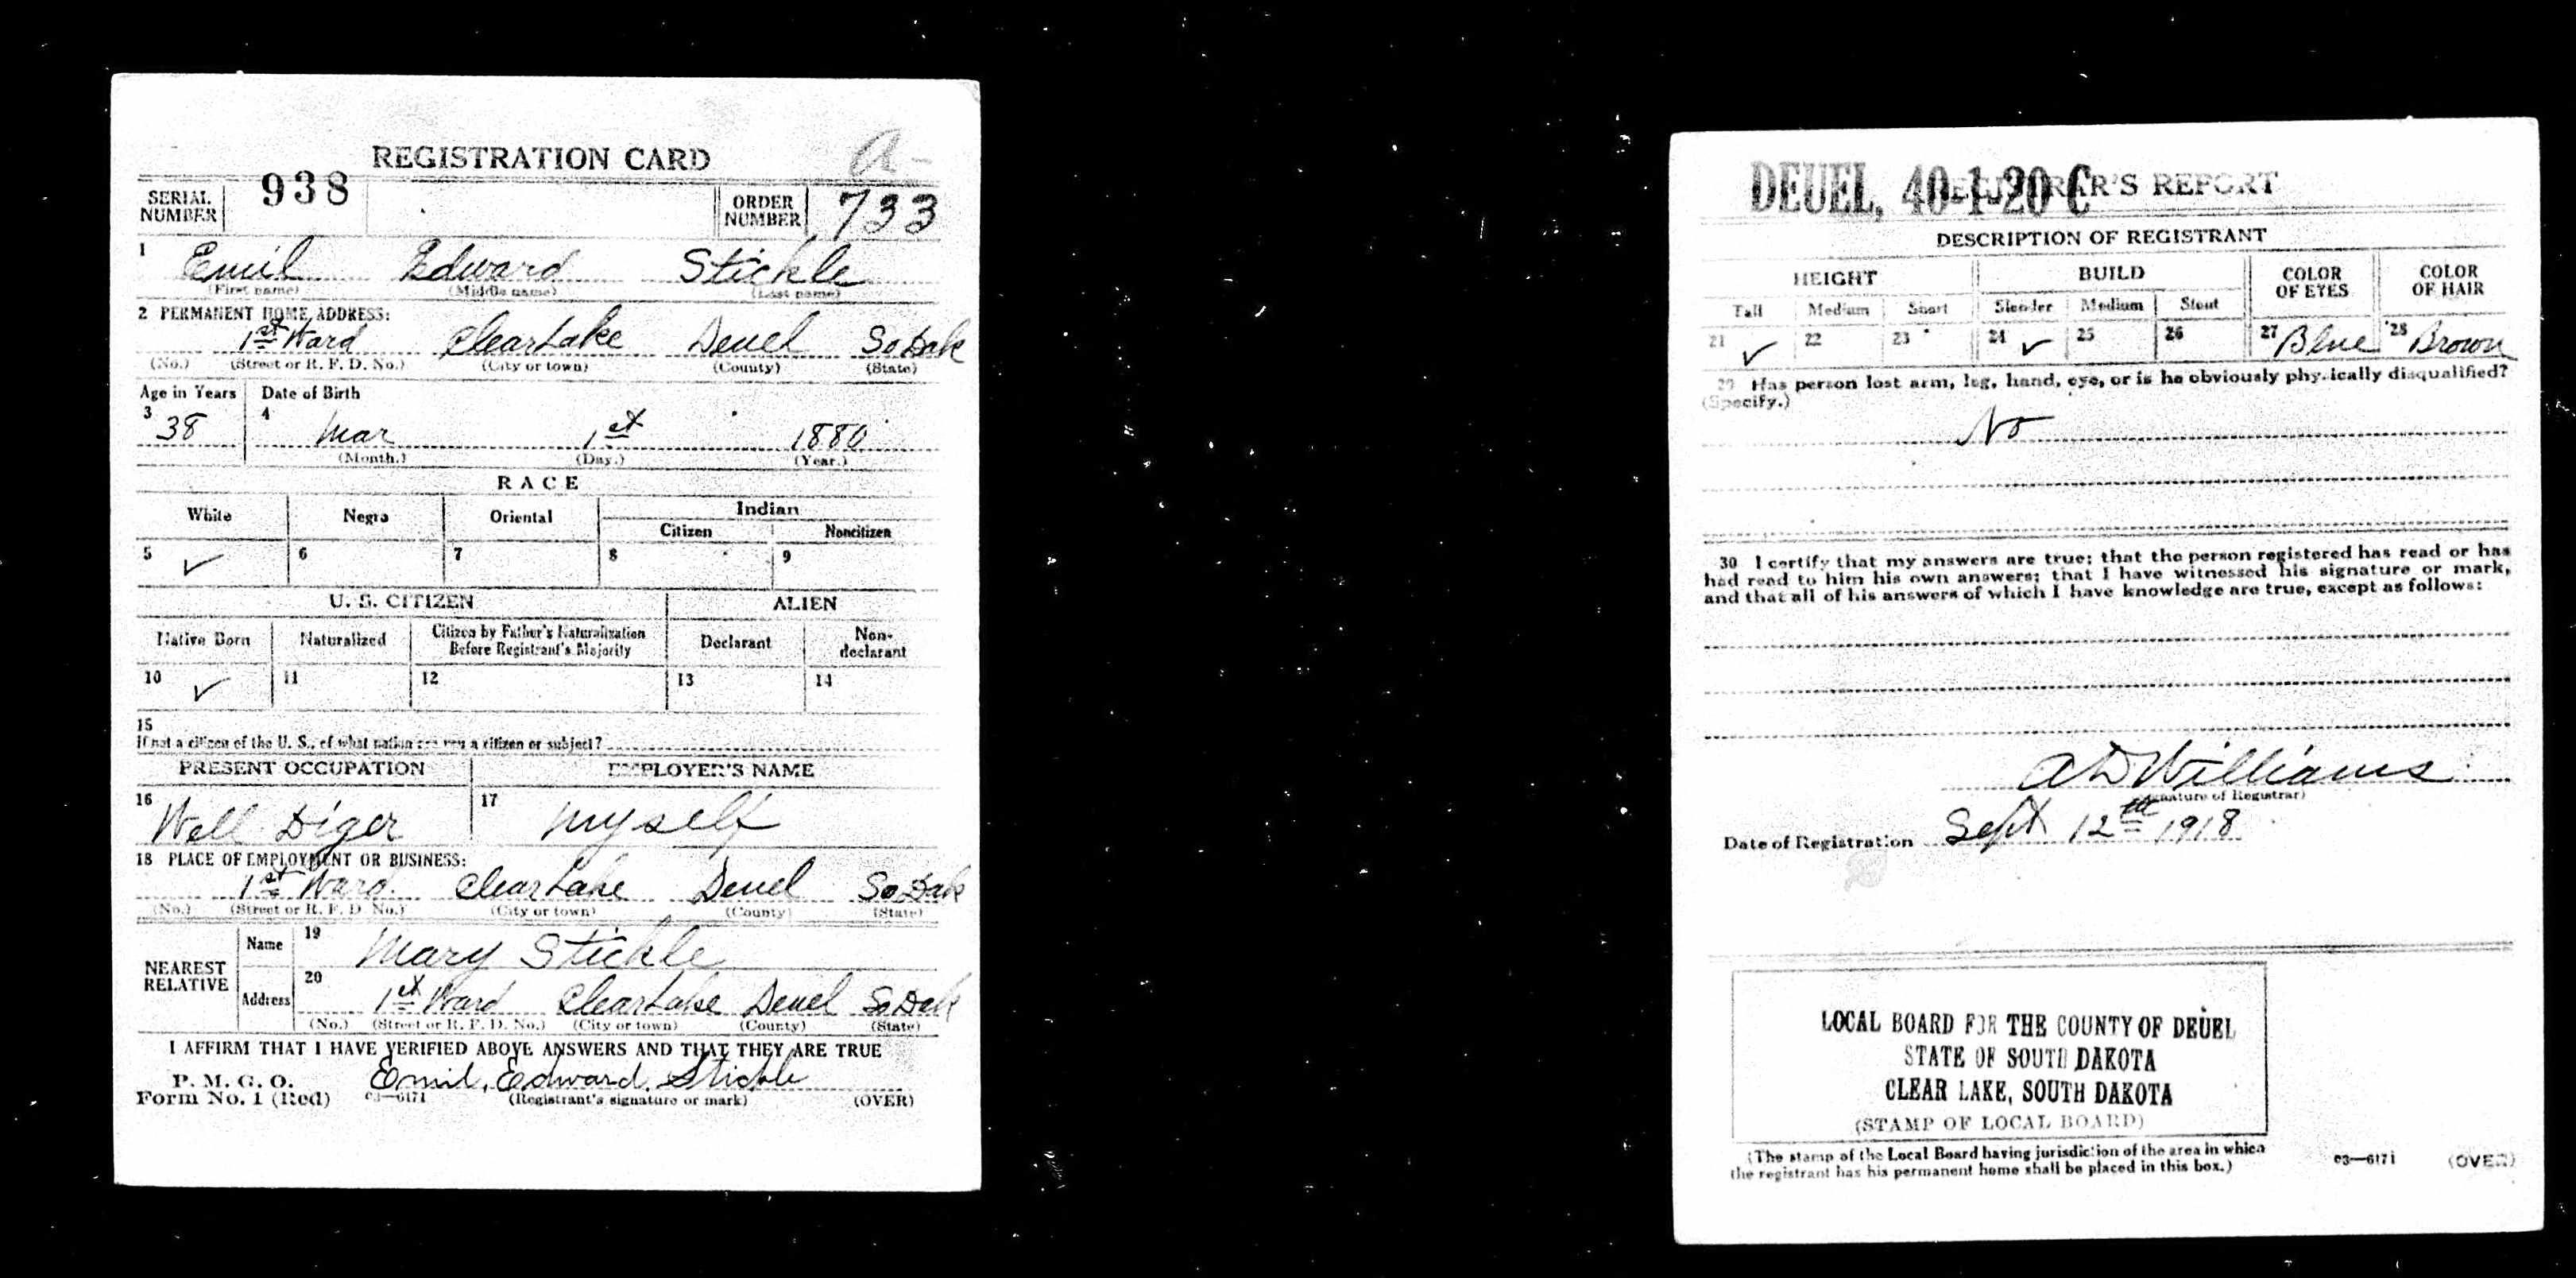 REGISTRATION CARD
A-
SERIAL NUMBER 938 ORDER NUMBER 733
1 Emil Edward Stickle
(First name) (Middle name) (Last name)
2 PERMANENT HOME ADDRESS:
1st Ward Clear Lake Deuel So Dak
(No.) (Street or R. F. D. No.) (City or town) (County) (State)
Age in Years Date of Birth
3 38 4 Mar 1st 1880
(Month.) (Day.) (Year.)
RACE
White Negro Oriental Indian
Citizen Noncitizen
5 ✓ 6 7 8 9
U. S. CITIZEN ALIEN
Native Born Naturalized Citizen by Father's Naturalization Before Registrant's Majority Declarant Non-declarant
10 ✓ 11 12 13 14
15
If not a citizen of the U. S., of what nation are you a citizen or subject?
PRESENT OCCUPATION EMPLOYER'S NAME
16 Well Diger 17 Myself
18 PLACE OF EMPLOYMENT OR BUSINESS:
1st Ward Clear Lake Deuel So Dak
(No.) (Street or R. F. D. No.) (City or town) (County) (State)
NEAREST RELATIVE Name 19 Mary Stickle
Address 20 1st Ward Clear Lake Deuel So Dak
(No.) (Street or R. F. D. No.) (City or town) (County) (State)
I AFFIRM THAT I HAVE VERIFIED ABOVE ANSWERS AND THAT THEY ARE TRUE
P. M. G. O. Emil, Edward, Stickle
Form No. 1 (Red) 03—6171 (Registrant's signature or mark) (OVER)
DEUEL, 40-1-20 C REGISTRAR'S REPORT
DESCRIPTION OF REGISTRANT
HEIGHT BUILD COLOR OF EYES COLOR OF HAIR
Tall Medium Short Slender Medium Stout
21 ✓ 22 23 24 ✓ 25 26 27 Blue 28 Brown
29 Has person lost arm, leg, hand, eye, or is he obviously physically disqualified?
(Specify.)
No
30 I certify that my answers are true; that the person registered has read or has
had read to him his own answers; that I have witnessed his signature or mark,
and that all of his answers of which I have knowledge are true, except as follows:
A D Williams
(Signature of Registrar)
Date of Registration Sept 12th 1918
LOCAL BOARD FOR THE COUNTY OF DEUEL
STATE OF SOUTH DAKOTA
CLEAR LAKE, SOUTH DAKOTA
(STAMP OF LOCAL BOARD)
(The stamp of the Local Board having jurisdiction of the area in which
the registrant has his permanent home shall be placed in this box.)
03—6171 (OVER)